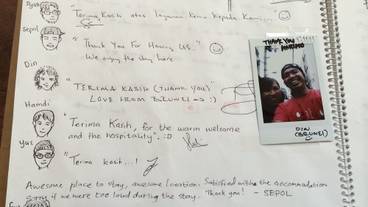 Terima Kasih atas layanan Kamu Kepada Kami
Syed
"Thank You For Having US."
We enjoy the day here
Din
"TERIMA KASIH (THANK YOU)"
LOVE FROM BRUNEI :)
Hamdi
"Terima Kasih, for the warm welcome
and the hospitality". :D
Yus
"Terima kasih...!
Awesome place to stay, awesome location. Satisfied with the accomodation
Sorry if we were too loud during the stay. Thank you! - SEPOL
THANK YOU
DIN
(BRUNEI)